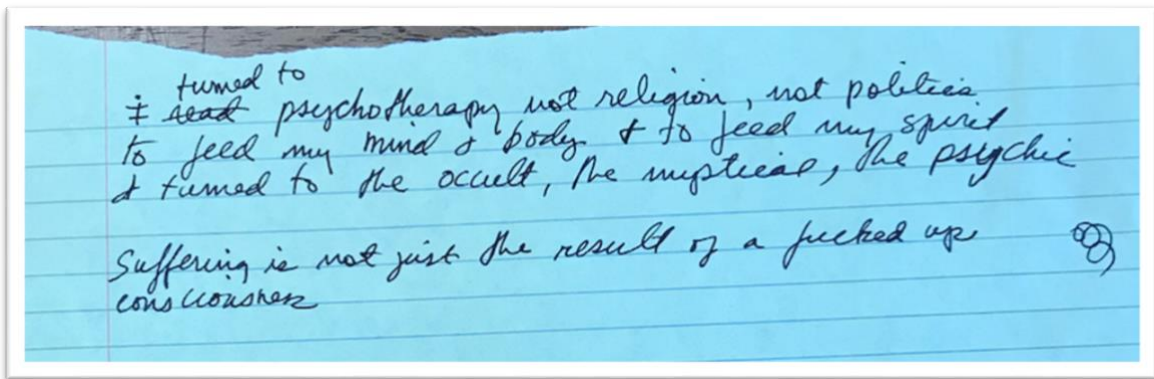 turned to
I read psychotherapy not religion, not politics
to feed my mind & body & to feed my spirit
I turned to the occult, the mystical, the psychic
Suffering is not just the result of a fucked up
consciousness